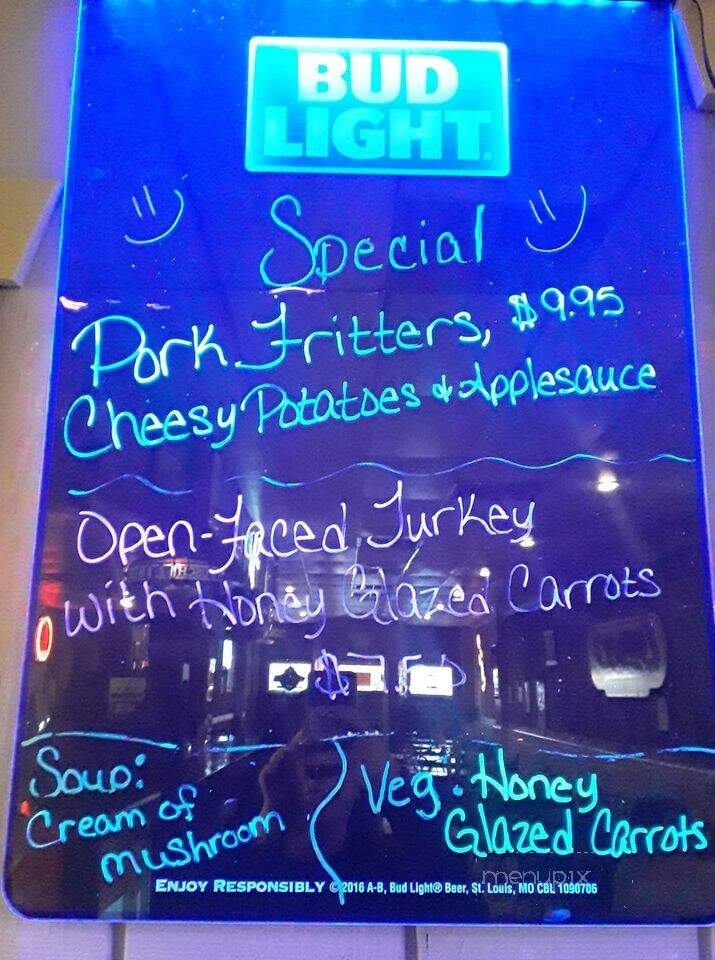 BUD
LIGHT
Special
Pork Fritters, $9.95
Cheesy Potatoes & Applesauce
Open-Faced Turkey
with Honey Glazed Carrots
Soup:
Cream of
mushroom
Veg. Honey
Glazed Carrots
menupix
ENJOY RESPONSIBLY ©2016 A-B, Bud Light® Beer, St. Louis, MO CBL 1090706